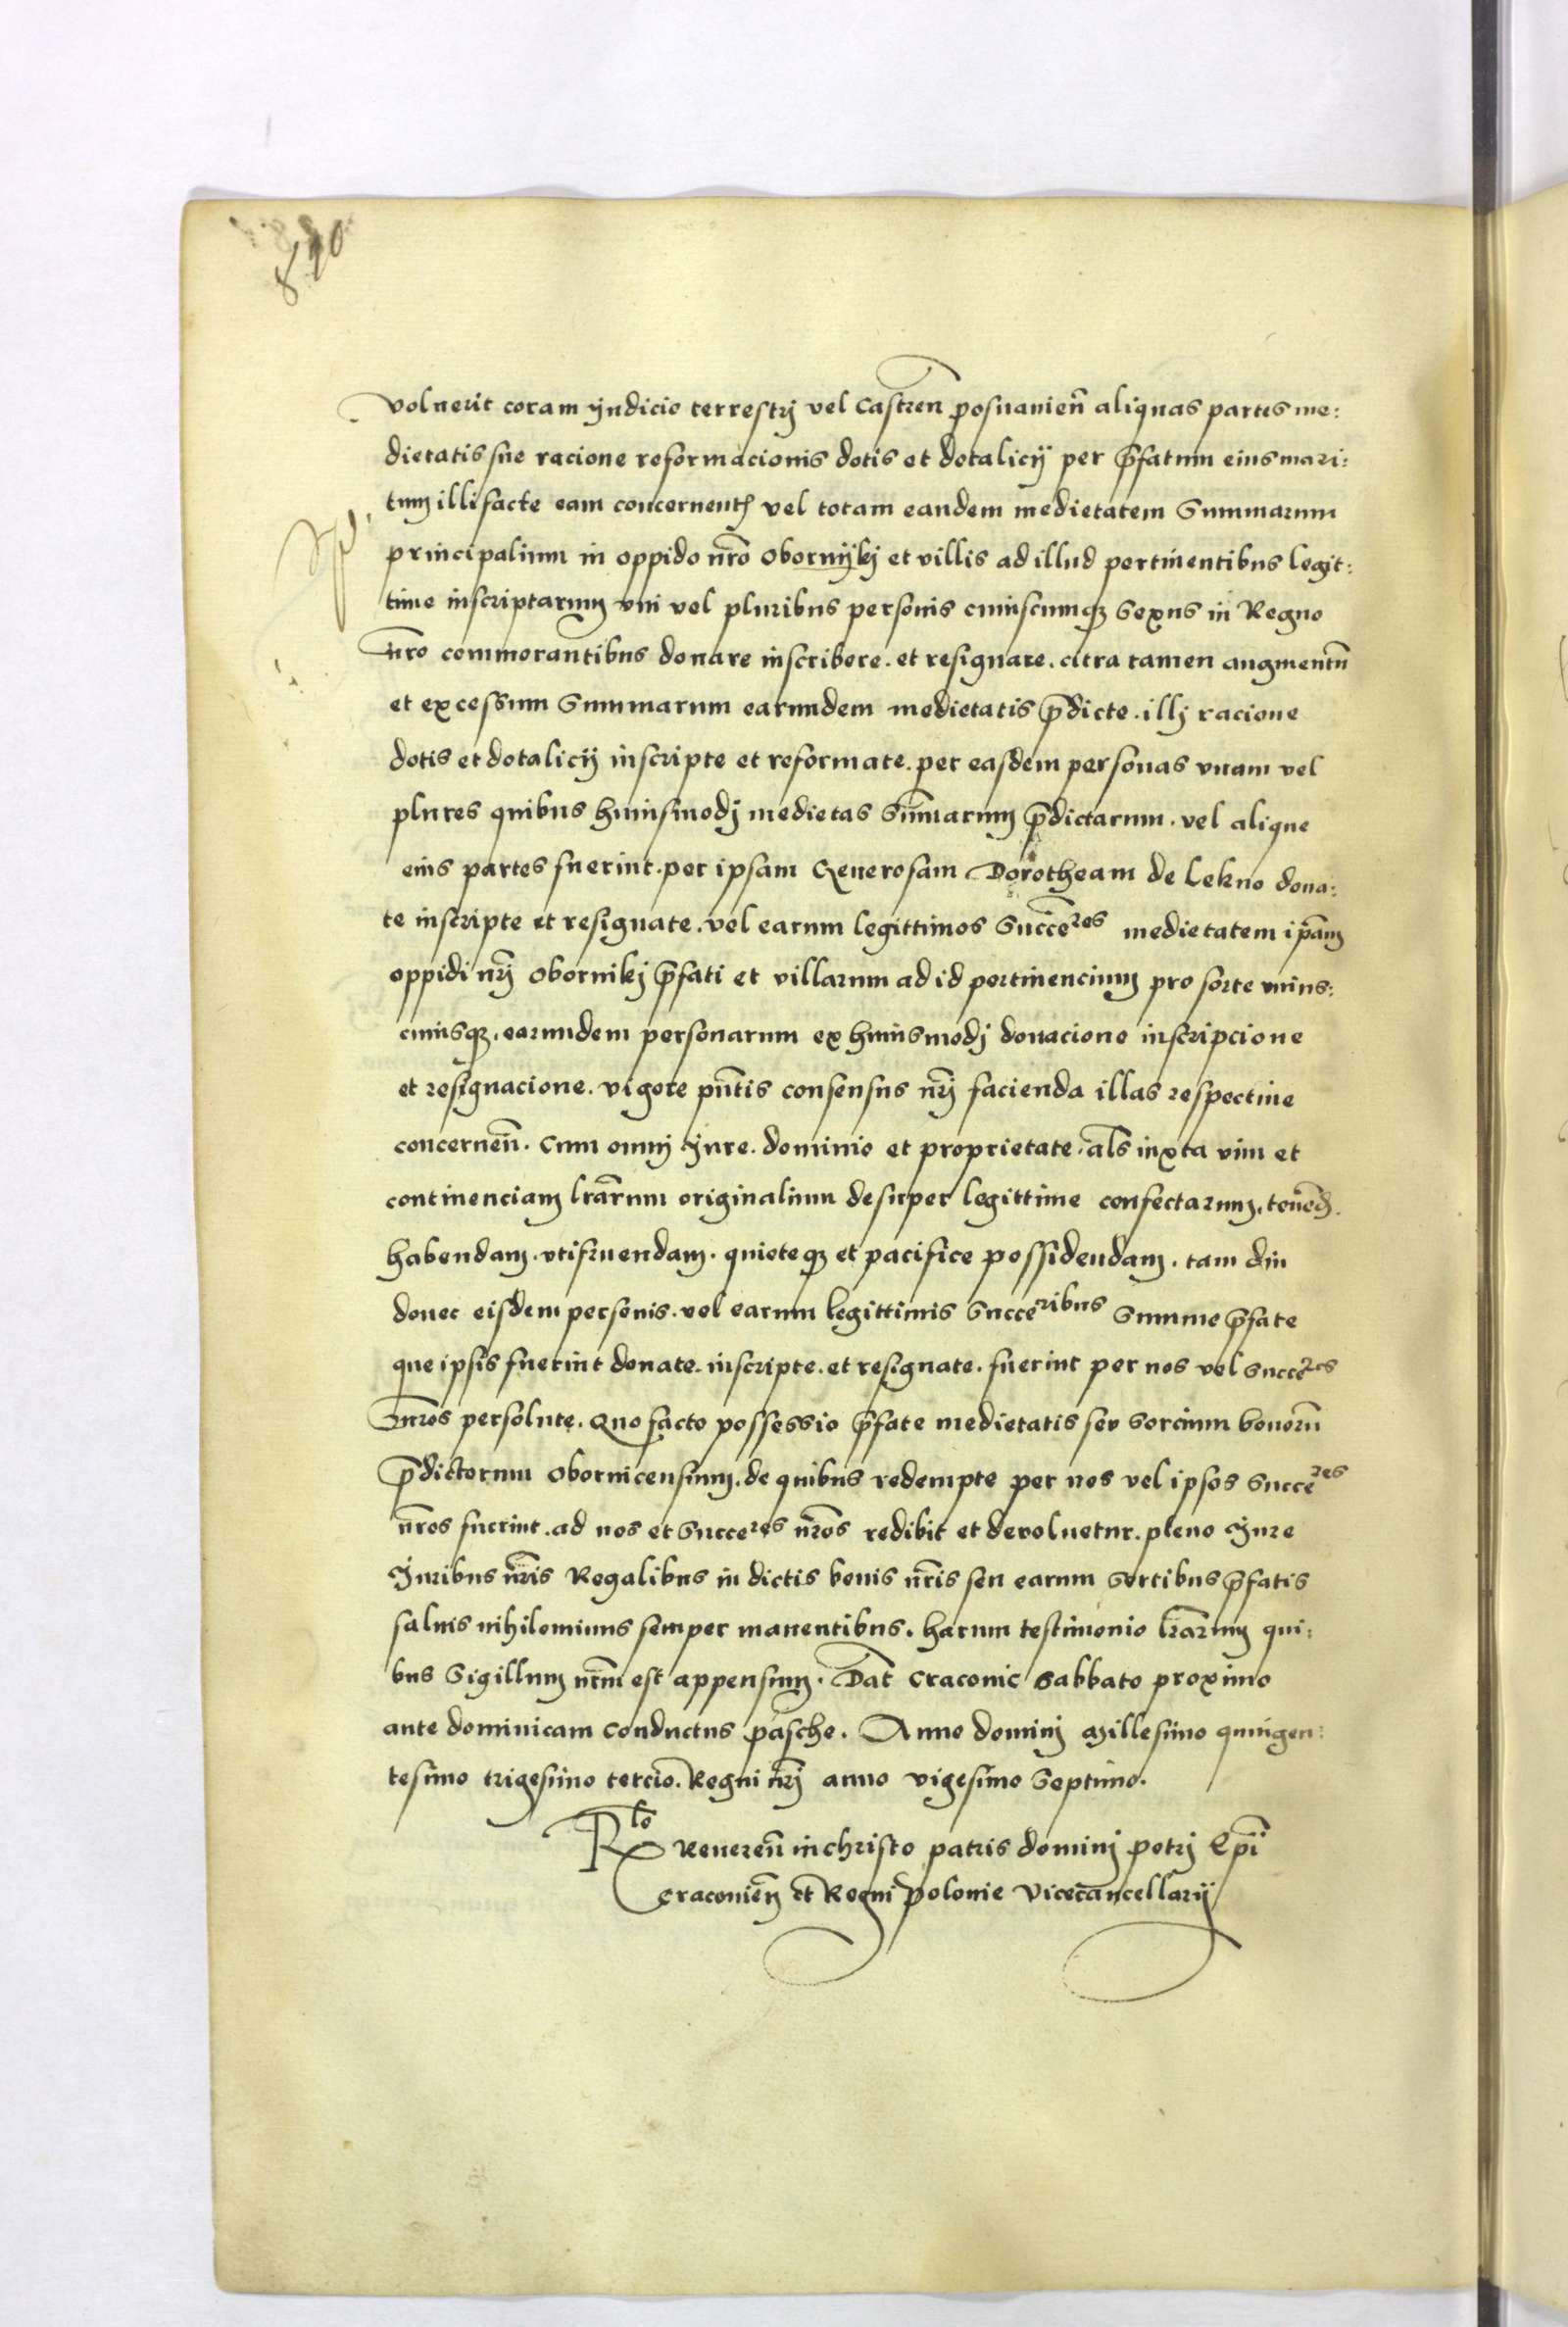 voluerit coram Judicio terrestrj vel Castren̄ posnanien̄ aliquas partes me:
dietatis sue racione reformacionis dotis et dotalicij per p̄fatum eius mari:
tum illi facte eam concernentꝭ vel totam eandem medietatem Summarum
principalium in oppido nr̄o Obornijkj et villis ad illud pertinentibus legit:
time inscriptarum vni vel pluribus personis cuiuscumqꝫ Sexus in Regno
nr̄o commorantibus donare inscribere . et resignare . citra tamen augmentū
et excessum Summarum earundem medietatis p̄dicte . illj racione
dotis et dotalicij inscripte et reformate . per easdem personas vnam vel
plures quibus huiusmodj medietas Sum̄arum p̄dictarum . vel alique
eius partes fuerint . per ipsam Generosam Dorotheam de Lekno dona:
te inscripte et resignate . vel earum legittimos Succeres medietatem ip̄am
oppidi nr̄j Obornikj p̄fati et villarum ad id pertinencium pro sorte vnius:
cuiusqꝫ . earundem personarum ex huiusmodj donacione inscripcione
et resignacione . vigore pn̄tis consensus nr̄j facienda illas respectiue
concernen̄ . Cum omnj Jure . dominio et proprietate . als̄ iuxta vim et
continenciam lrārum originalium desuper legittime confectarum . tenen̄d .
habendam . vtifruendam . quieteqꝫ et pacifice possidendam . tam diu
donec eisdem personis . vel earum legittimis Succeribus Summe p̄fate
que ipsis fuerint donate . inscripte . et resignate . fuerint per nos vel Succeres
nr̄os persolute . Quo facto possessio p̄fate medietatis seu Sorcium bonorū
p̄dictorum Obornicensium . de quibus redempte per nos vel ipsos Succeres
nr̄os fuerint . ad nos et Succeres nr̄os redibit et devoluetur . pleno Jure
Juribus nr̄is Regalibus in dictis bonis nr̄is seu earum Sortibus p̄fatis
saluis nihilominus semper manentibus . harum testimonio lrārum qui:
bus Sigillum nr̄m est appensum . Dat̄ Craconie Sabbato proximo
ante dominicam Conductus pasche . Anno dominj Millesimo quingen:
tesimo trigesimo tercio . Regni nr̄j anno vigesimo Septimo .
Rlo Reueren̄ in christo patris dominj petrj Ep̄i
Craconien̄ et Regni polonie Vicecancellarij